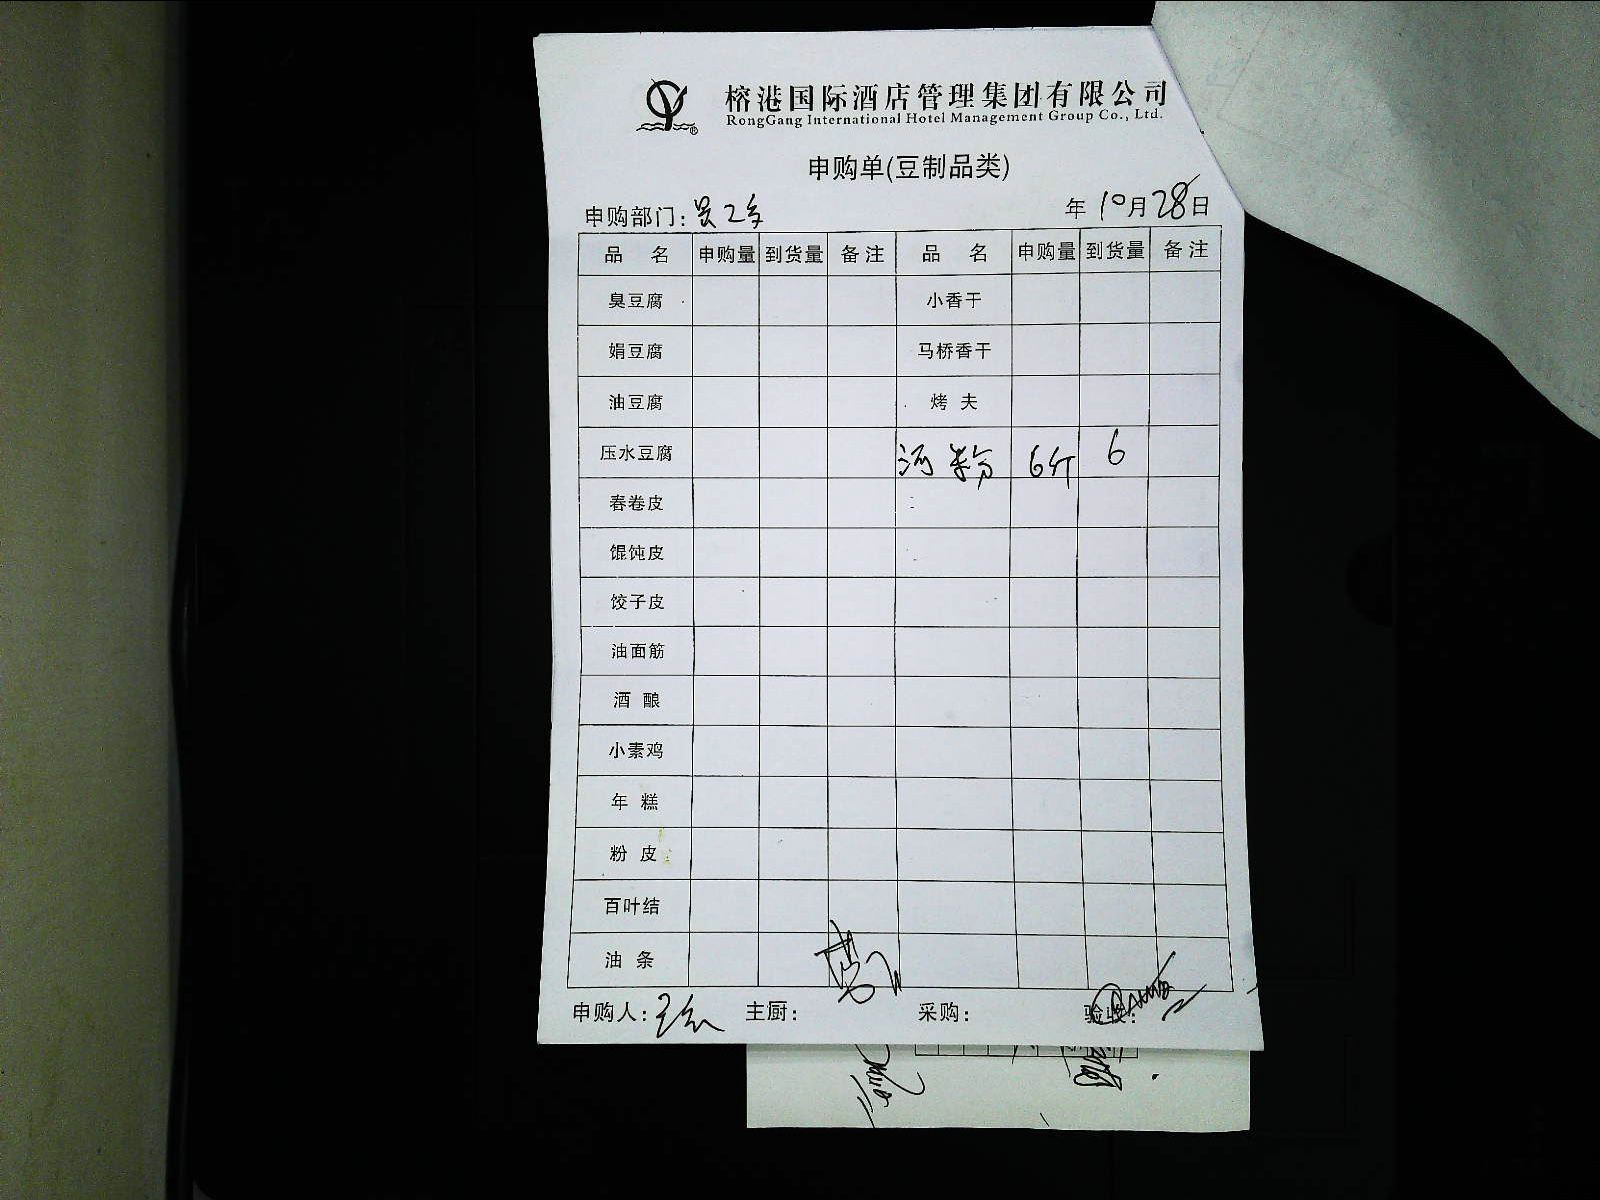 榕港国际酒店管理集团有限公司
RongGang International Hotel Management Group Co., Ltd.
申购单(豆制品类)
申购部门: 年 10月28日
品 名 申购量 到货量 备注 品 名 申购量 到货量 备注
臭豆腐 小香干
娟豆腐 马桥香干
油豆腐 烤 夫
压水豆腐 河粉 6斤 6
春卷皮
馄饨皮
饺子皮
油面筋
酒 酿
小素鸡
年 糕
粉 皮
百叶结
油 条
申购人: 主厨: 采购: 验收: